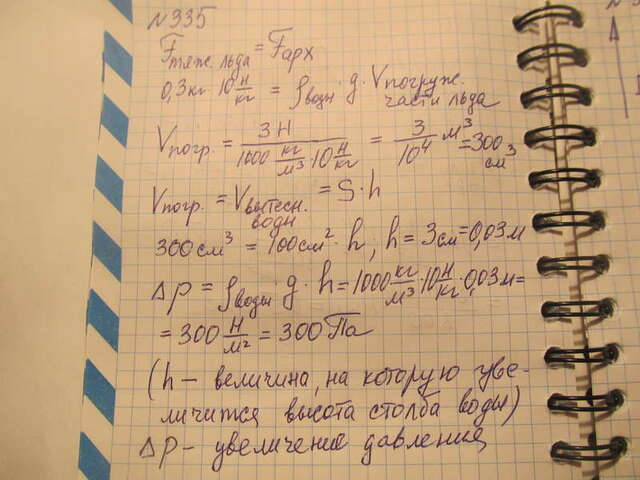 №335
Fтяж. льда = Fарх
0,3 кг · 10 Н/кг = ρводы · g · Vпогруж. части льда
Vпогр. = 3 Н / (1000 кг/м³ · 10 Н/кг) = 3/10⁴ м³ = 300 см³
Vпогр. = Vвытесн. воды = S · h
300 см³ = 100 см² · h, h = 3 см = 0,03 м
Δp = ρводы · g · h = 1000 кг/м³ · 10 Н/кг · 0,03 м =
= 300 Н/м² = 300 Па
(h – величина, на которую уве-
личится высота столба воды)
Δp – увеличение давления